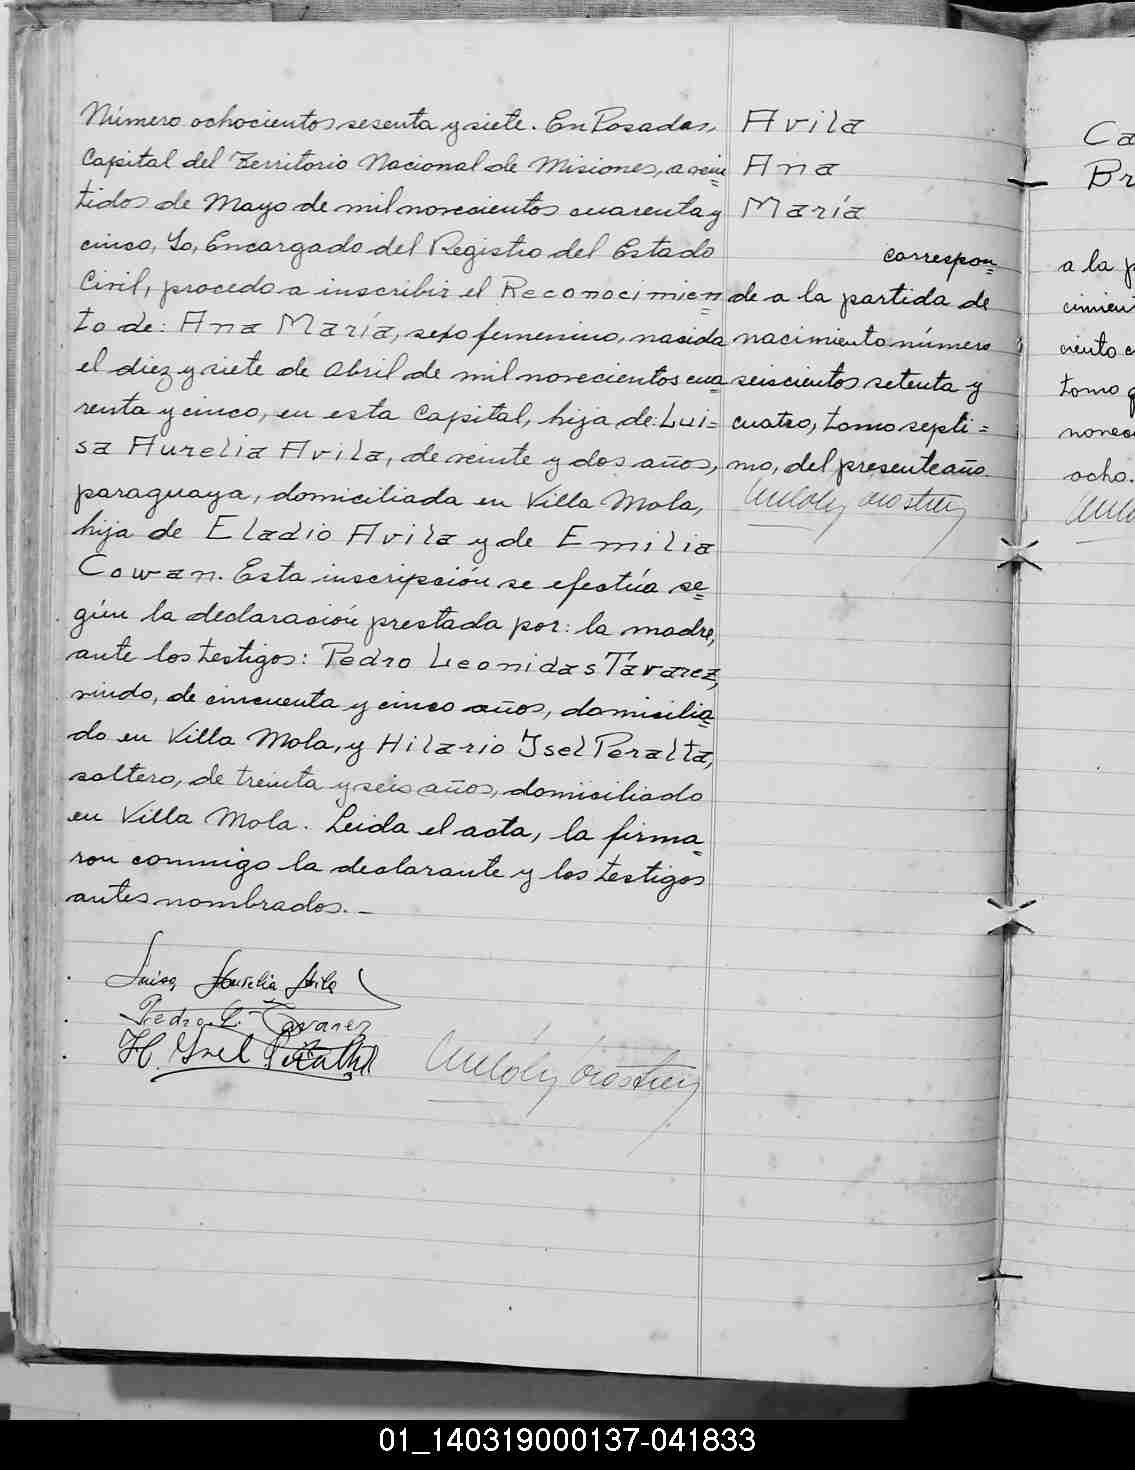 Número ochocientos sesenta y siete. En Posadas,
Capital del Territorio Nacional de Misiones, a vein=
tidos de Mayo de mil novecientos cuarenta y
cinco, Yo, Encargado del Registro del Estado
Civil, procedo a inscribir el Reconocimien=
to de: Ana María, sexo femenino, nacida
el diez y siete de Abril de mil novecientos cua=
renta y cinco, en esta Capital, hija de: Lui=
sa Aurelia Avila, de veinte y dos años,
paraguaya, domiciliada en Villa Mola,
hija de Eladio Avila y de Emilia
Cowan. Esta inscripción se efectúa se=
gún la declaración prestada por: la madre,
ante los testigos: Pedro Leonidas Tavarez,
viudo, de cincuenta y cinco años, domicilia=
do en Villa Mola, y Hilario Ysel Peralta,
soltero, de treinta y seis años, domiciliado
en Villa Mola. Leida el acta, la firma=
ron conmigo la declarante y los testigos
antes nombrados. –
Luisa Aurelia Avila
Pedro L. Tavarez
H. Ysel Peralta
Avila
Ana
María
correspon=
de a la partida de
nacimiento número
seiscientos setenta y
cuatro, tomo septi=
mo, del presente año.
Ca
Br
a la p
cimien
ciento c
tomo q
novec
ocho.
01_140319000137-041833